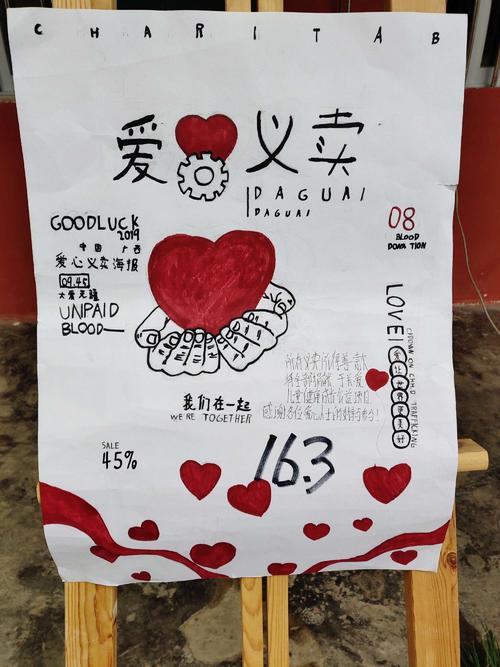 CHARITAB
爱 义卖
DAGUAI
DAGUAI
GOODLUCK
2019
中国 广西
爱心义卖海报
09.45
大爱无疆
UNPAID
BLOOD—
08
BLOOD
DONATION
LOVE!
CROWN ON CHILD TRAFFICKING
爱让世界更美好
所有义卖所得善款
将全部捐献于关爱
儿童健康成长公益项目
感谢各位爱心人士的支持与参与!
我们在一起
WE'RE TOGETHER
SALE
45%
16.3